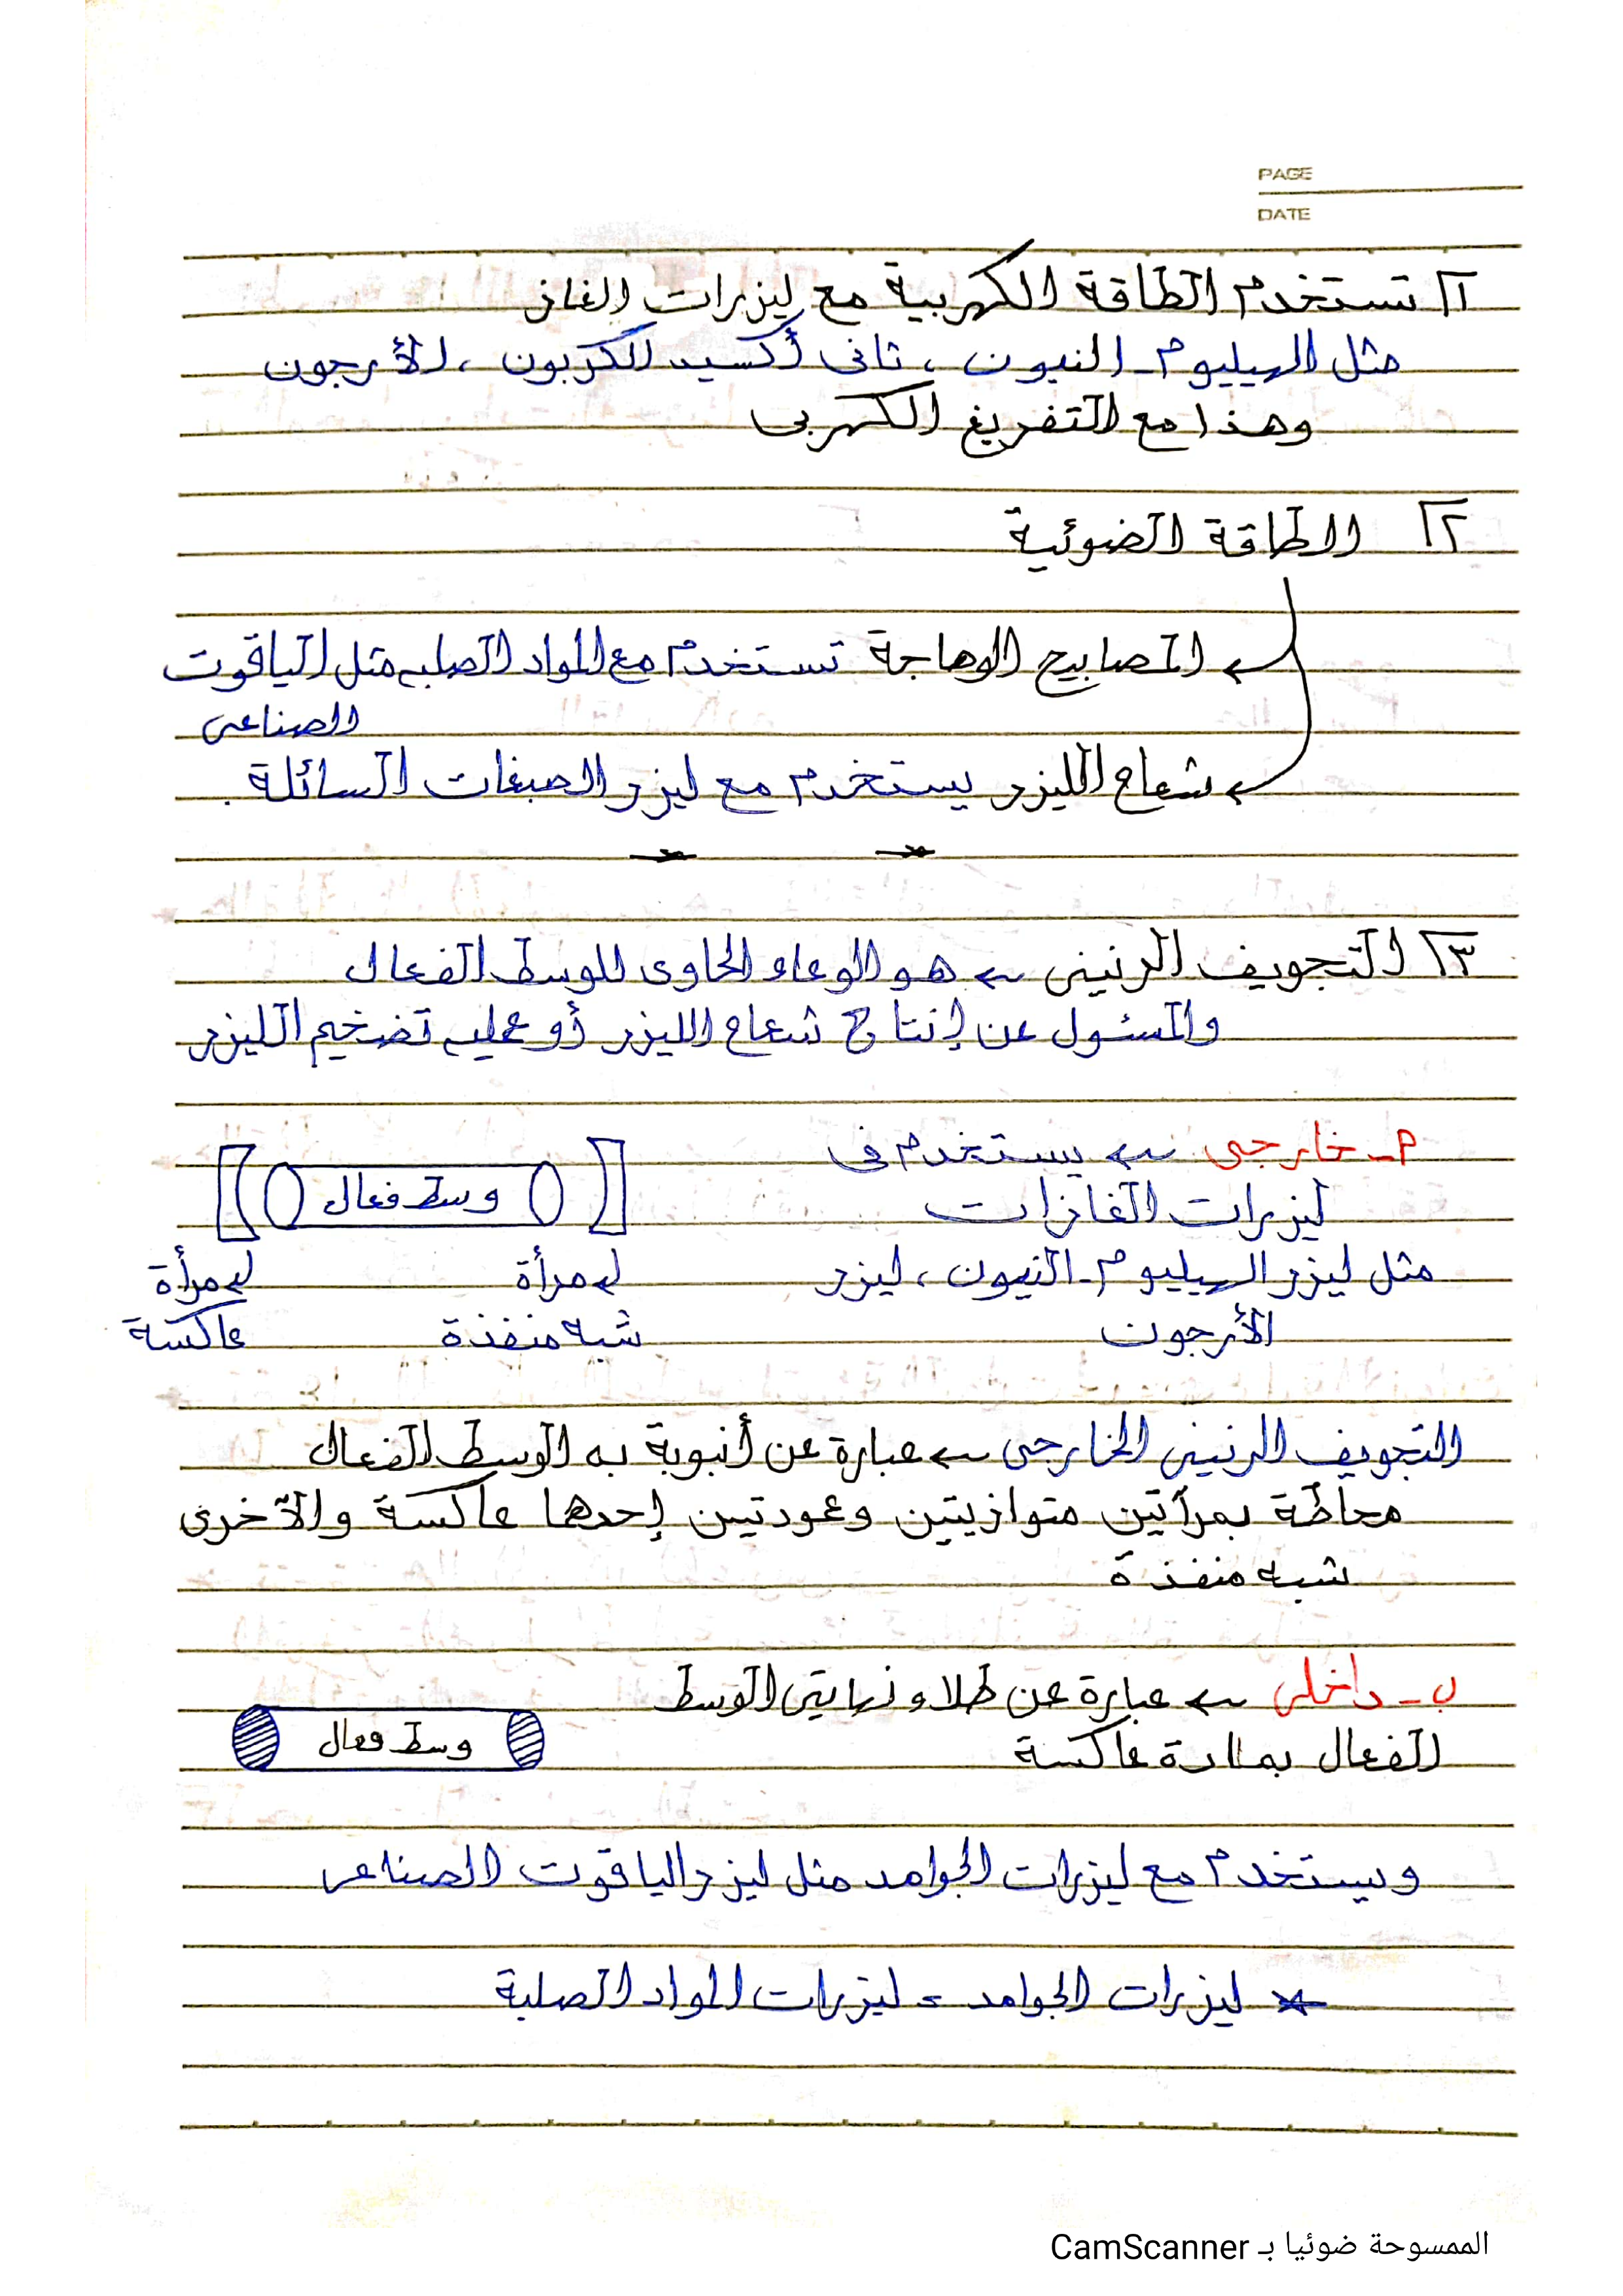 PAGE
DATE
١ تستخدم الطاقة الكهربية مع ليزرات الغاز
مثل الهيليوم - النيون ، ثانى أكسيد الكربون ، الأرجون
وهذا مع التفريغ الكهربى
٢ الطاقة الضوئية
← المصابيح الوهاجة تستخدم مع المواد الصلبه مثل الياقوت
الصناعى
← شعاع الليزر يستخدم مع ليزر الصبغات السائلة .
٣ التجويف الرنينى ← هو الوعاء الحاوى للوسط الفعال
والمسئول عن إنتاج شعاع الليزر أو عمليه تضخيم الليزر
م - خارجى ← يستخدم فى
وسط فعال
ليزرات الغازات
مثل ليزر الهيليوم - النيون ، ليزر
مرأة
مرأة
الأرجون
شبه منفذة
عاكسة
التجويف الرنينى الخارجى ← عبارة عن أنبوبة به الوسط الفعال
محاطة بمرآتين متوازيتين وعودتين إحدها عاكسة والآخرى
شبه منفذة
ب - داخلى ← عبارة عن طلاء نهايتى الوسط
الفعال بمادة عاكسة
وسط فعال
ويستخدم مع ليزرات الجوامد مثل ليزر الياقوت الصناعى
* ليزرات الجوامد = ليزرات المواد الصلبة
الممسوحة ضوئيا بـ CamScanner